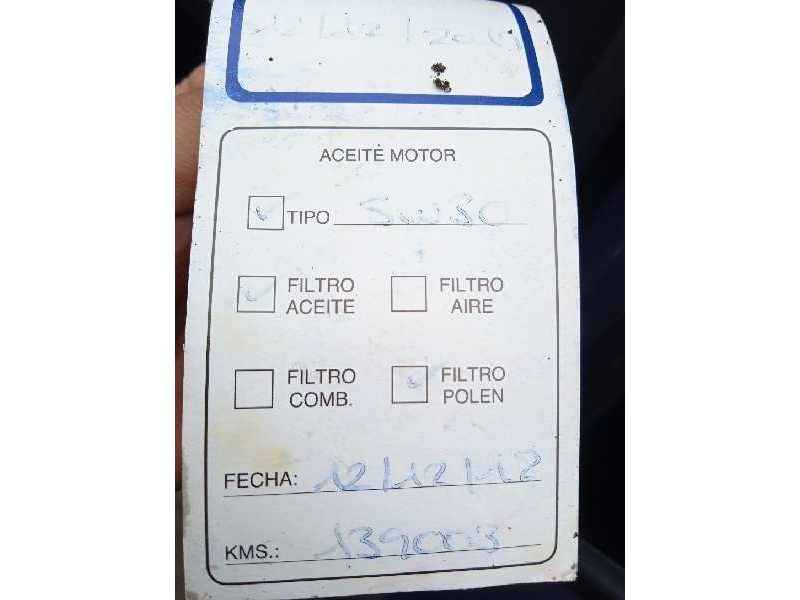 12/12/2019
ACEITE MOTOR
TIPO 5W30
FILTRO ACEITE
FILTRO AIRE
FILTRO COMB.
FILTRO POLEN
FECHA: 12/12/18
KMS.: 139003